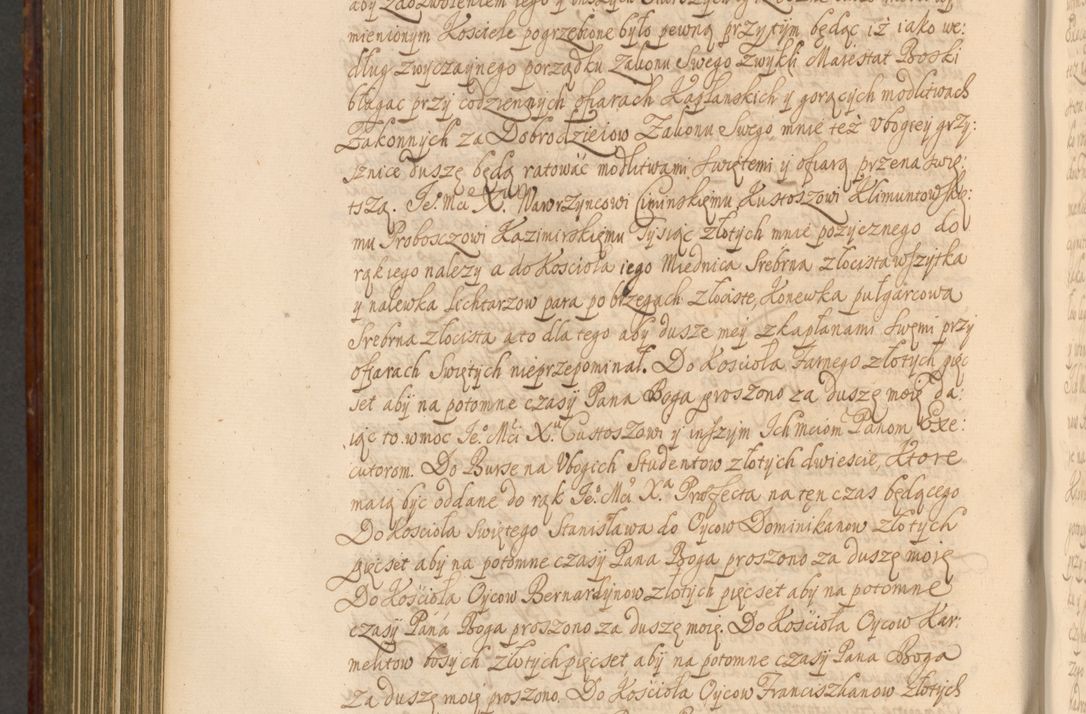 mienionym Kosciele pogrzebione było pewną przytym będąc iż iako we:
dług zwyczaynego porządku Zakonu Swego zwykli Maiestat Boski
błagac przy codziennych ofiarach Kapłanskich y gorących modlitwach
Zakonnych za Dobrodzieiow Zakonu Swego mnie też Vbogiey grzy:
sznice duszę będą ratowáć modlitwami Swiętemi y ofiarą przena Swię:
tszą. Je.º Mci X.u Wawrzyncowi Kustoszowi Klimuntowskie:
mu Proboszczowi Kazimirskięmu Tysiąc złotych mnie pozycznego do
rąk iego nalezy a do Kosciola iego Miednica Srebrna złocista wszytka
y nalewka lichtarzow para po brzegach złociste, Konewka pułgarcowa
Srebrna złocista a to dla tego aby dusze mey z kapłanami Swęmi przy
ofiarach Swiętych nieprzepominał. Do Kosciola Farnego złotych pięć
set aby na potomne czasy Pana Boga proszono za duszę moię da:
iąc to w moc Je.º Mci X.u Custoszowi y inszym Ich mciom Panom Exe:
cutorom. Do Bursę na Vbogich Studentow złotych dwiescie, Ktore
maią byc oddane do rąk Je.º Mci X.a Profecta na tęn czas będącego
Do Kosciola Swiętego Stanisława do Oycow Dominikanow złotych
pięcset aby na potomne czasy Pana Boga proszono za duszę moię
Do Kosciola Oycow Bernardynow złotych pięcset aby na potomne
czasy Pana Boga proszono za duszę moię. Do Kosciola Oycow Kar:
melitow bosych złotych pięcset aby na potomne czasy Pana Boga
za duszę moię proszono. Do Kosciola Oycow Franciszkanow złotych